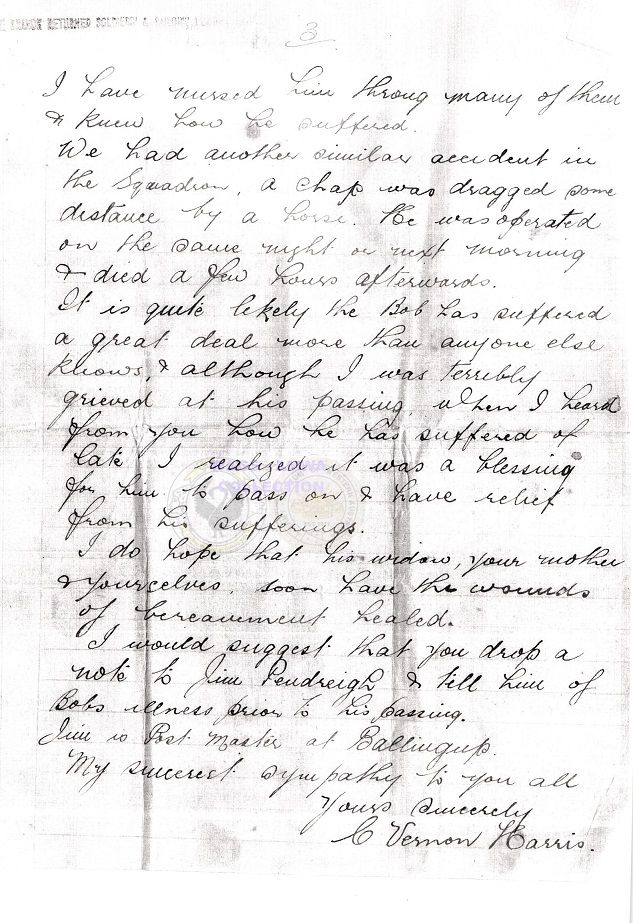 BRANCH RETURNED SOLDIERS' & SAILORS'
3
I have nursed him throug many of them
& knew how he suffered.
We had another similar accident in
the Squadron, a chap was dragged some
distance by a horse. He was operated
on the same night or next morning
& died a few hours afterwards.
It is quite likely the Bob has suffered
a great deal more than anyone else
knows, & although I was terribly
grieved at his passing, when I heard
from you how he has suffered of
late I realized it was a blessing
for him to pass on & have relief
from his sufferings.
I do hope that his widow, your mother
& yourselves, soon have the wounds
of bereavement healed.
I would suggest that you drop a
note to Jim Pendreigh & tell him of
Bobs illness prior to his passing.
Jim is Post Master at Ballingup.
My sincerest sympathy to you all
Yours sincerely
C Vernon Harris.
COLLECTION